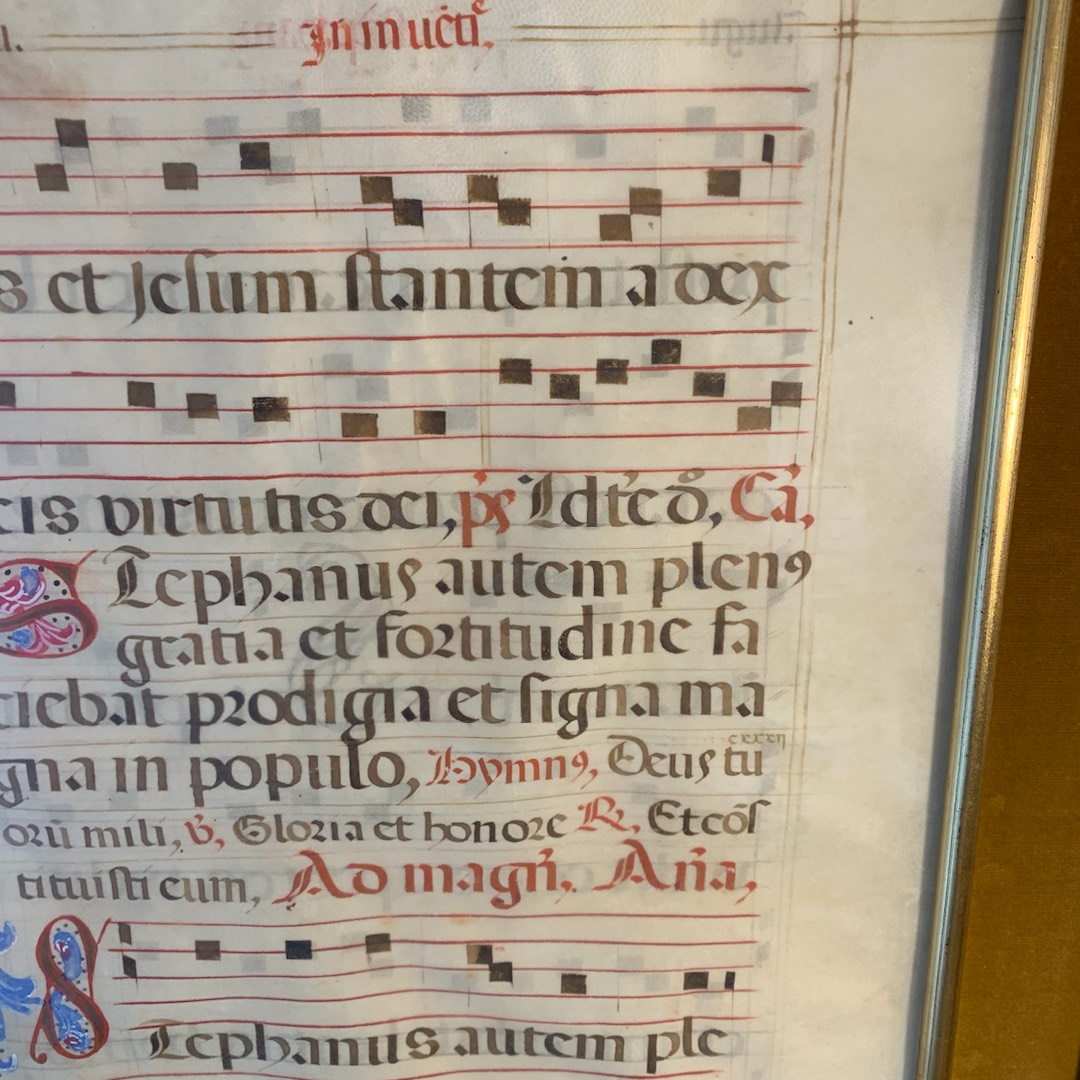 In inuẽti,
s et Jesum stantem a dex
cis virtutis dei, p̃s Ldt̃e d̃, Ca̓,
Tephanus autem plenꝯ
gratia et fortitudine fa
ciebat prodigia et signa ma
gna in populo, Hymnꝯ, Deus tu
cxxxij
orũ mili, ℣, Gloria et honore ℟, Et cõs
tituisti eum, Ad magñ. Aña,
S
Tephanus autem ple